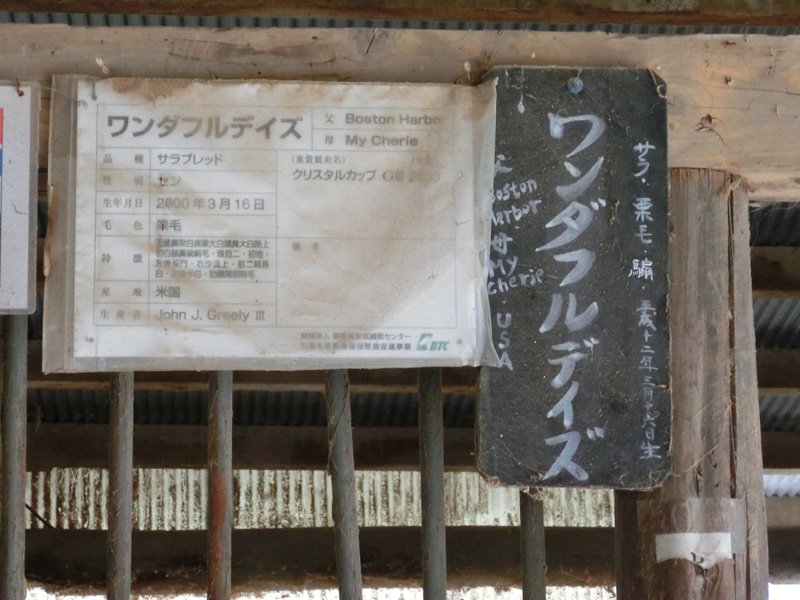 ワンダフルデイズ
父 Boston Harbor
母 My Cherie
品種 サラブレッド
性別 セン
生年月日 2000年3月16日
毛色 栗毛
特徴
産地 米国
生産者 John J. Greely III
(重賞競走名)
クリスタルカップ GIII 2003
備考
BTC
サラ・栗毛・騸 平成十二年三月十六日生
ワンダフルデイズ
父 Boston Harbor 母 My Cherie USA